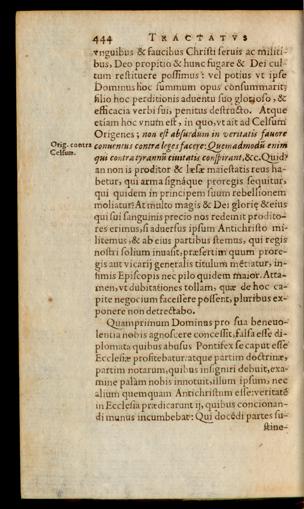 444 TRACTATVS
vnguibus & faucibus Christi seruis ac militi-
bus, Deo propitio & hunc fugare & Dei cul-
tum restituere possimus: vel potius vt ipse
Dominus hoc summum opus consummarit;
filio hoc perditionis aduentu suo glorioso, &
efficacia verbi sui, penitus destructo. Atque
etiam hoc vnum est, in quo, vt ait ad Celsum
Origenes; non est absurdum in veritatis fauore
Orig. contra
Celsum.
conuentus contra leges facere: Quemadmodũ enim
qui contra tyrannũ ciuitatis conspirant, &c. Quid?
an non is proditor & læsæ maiestatis reus ha-
betur, qui arma signáque proregis sequitur,
qui quidem in principem suum rebellionem
moliatur? At multo magis & Dei glorię & eius
qui sui sanguinis precio nos redemit prodito-
res erimus, si aduersus ipsum Antichristo mi-
litemus, & ab eius partibus stemus, qui regis
nostri solium inuasit, præsertim quum prore-
gis aut vicarij generalis titulum mẽtiatur, in-
fimis Episcopis nec pilo quidem maior. Atta-
men, vt dubitationes tollam, quæ de hoc ca-
pite negocium facessere possent, pluribus ex-
ponere non detrectabo.
Quamprimum Dominus pro sua beneuo-
lentia nobis agnoscere concessit, falsa esse di-
plomata quibus abusus Pontifex se caput esse
Ecclesiæ profitebatur: atque partim doctrinæ,
partim notarum, quibus insigniri debuit, exa-
mine palàm nobis innotuit, illum ipsum, nec
alium quemquam Antichristum esse: veritatẽ
in Ecclesia prædicarunt ij, quibus concionan-
di munus incumbebat: Qui docẽdi partes su-
stine-